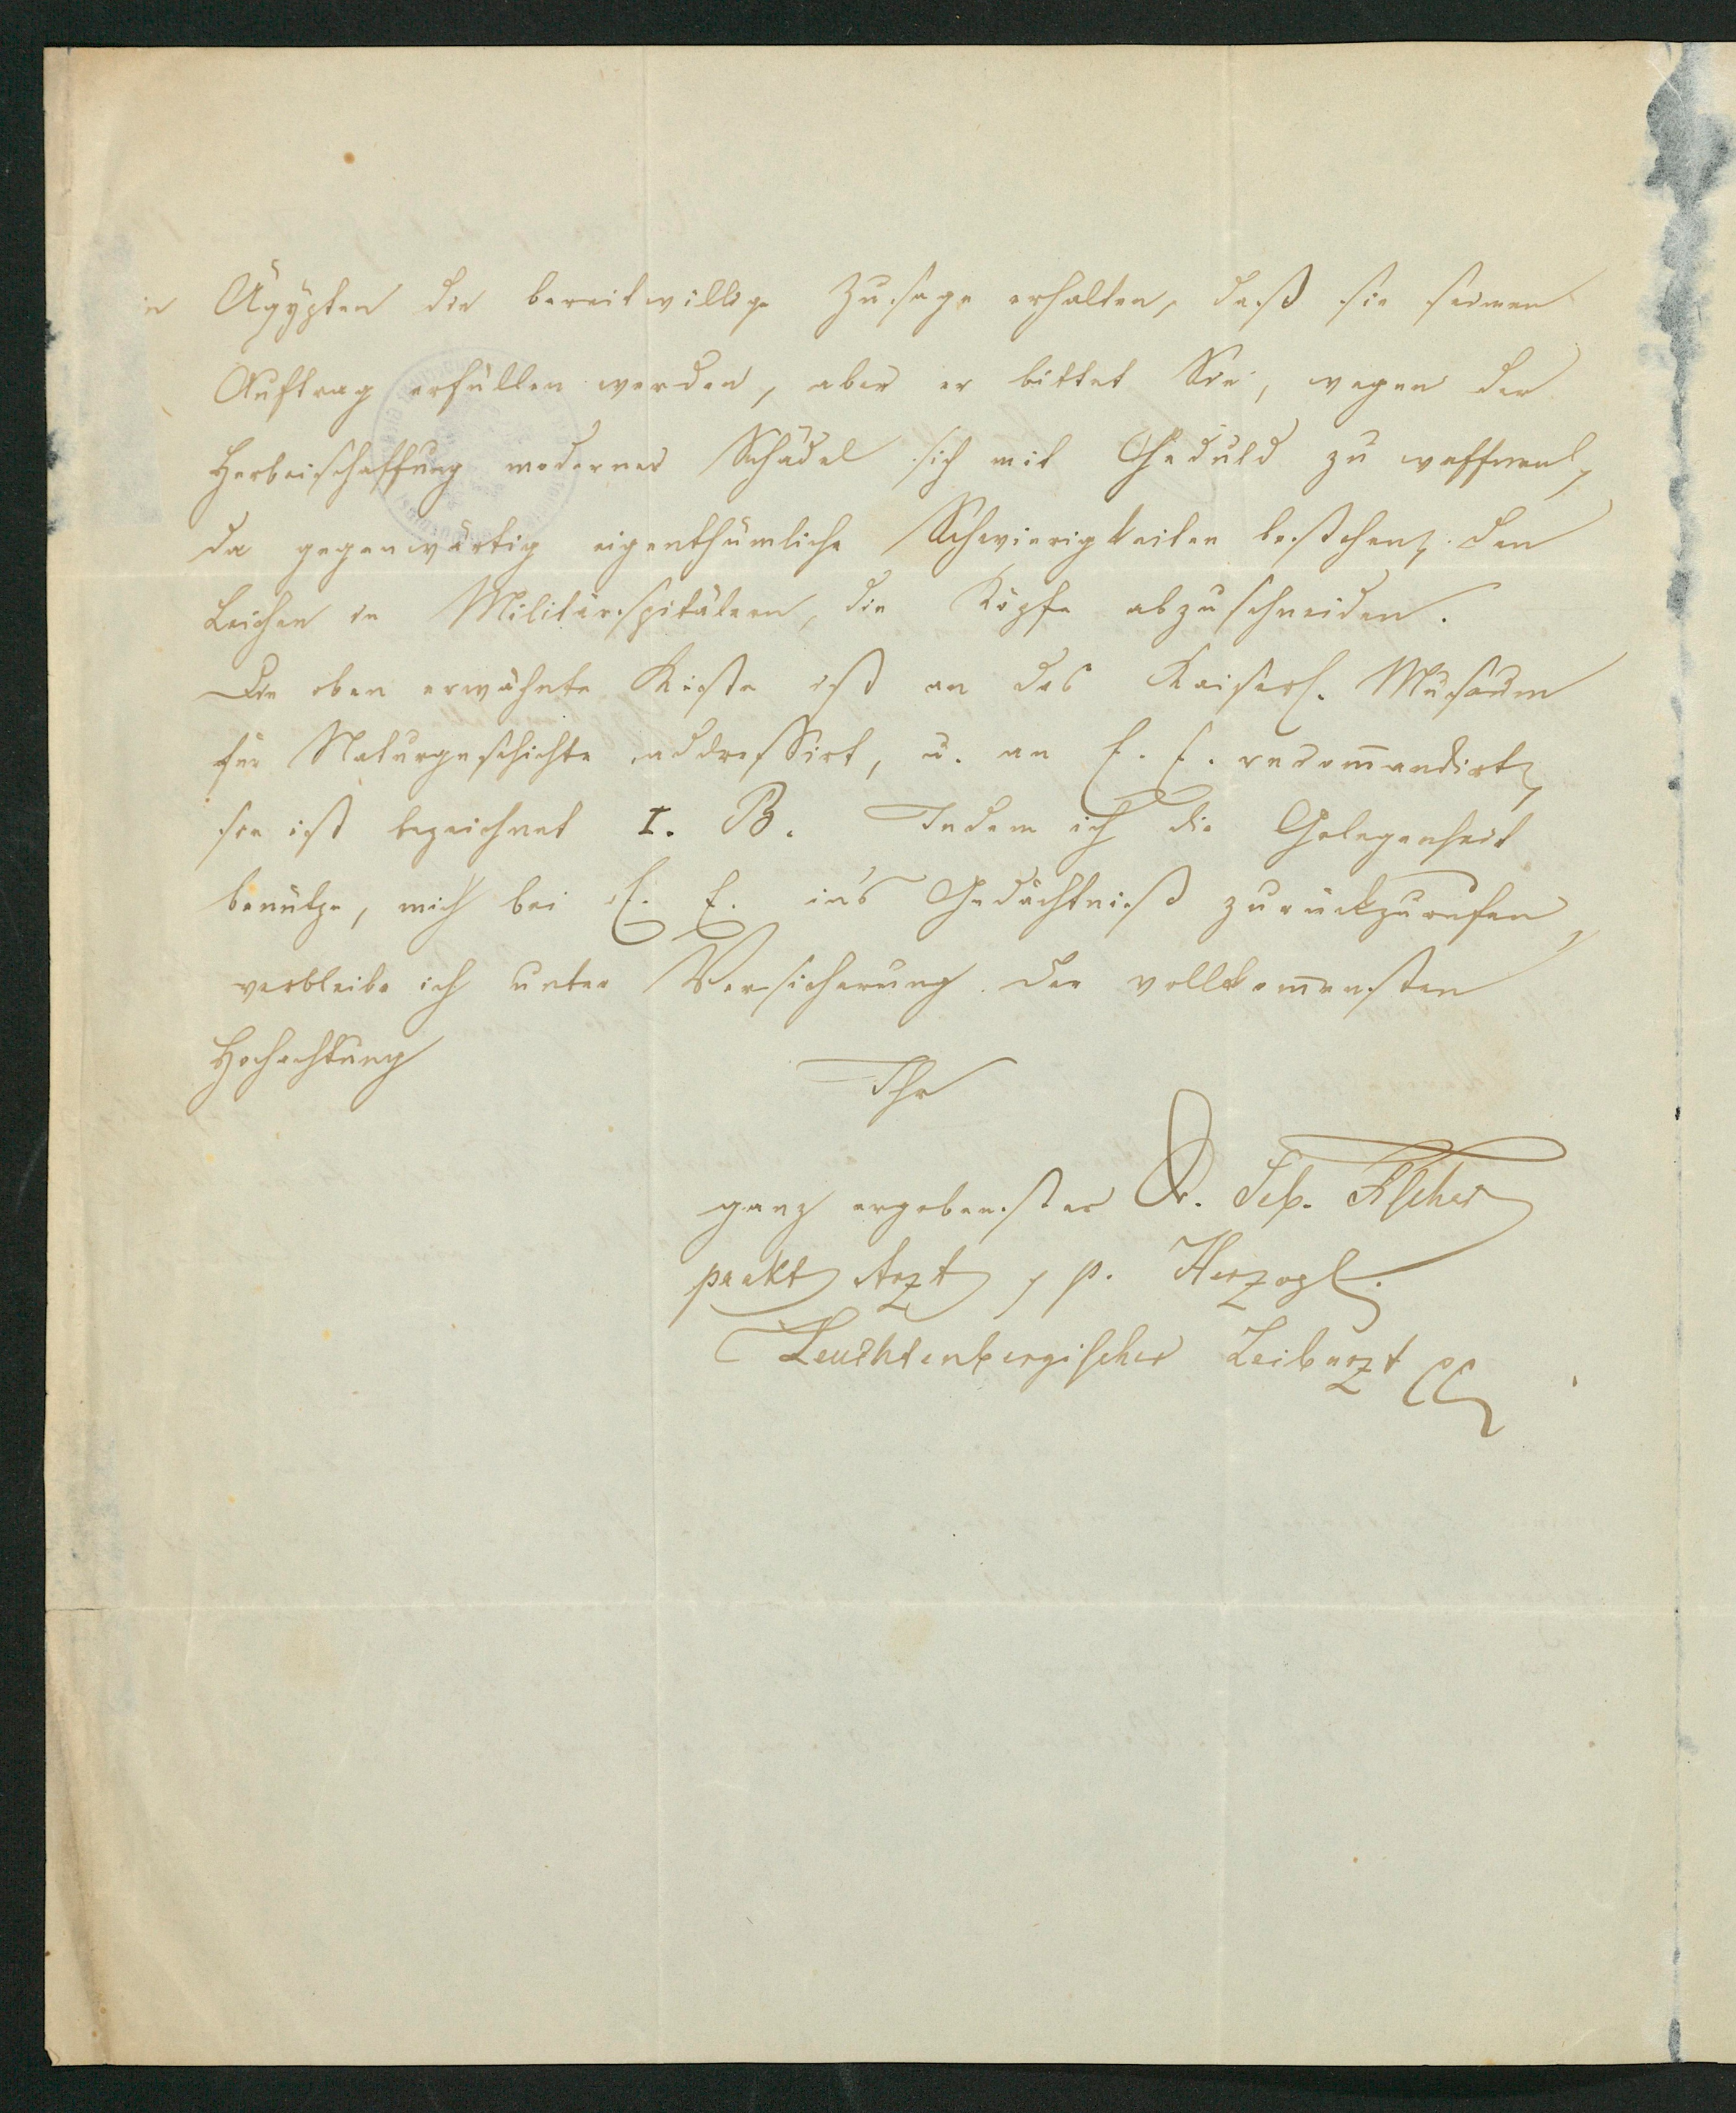 in Ägypten die bereitwillige Zusage erhalten, daß sie seinen
Auftrag erfüllen werden, aber er bittet Sie, wegen der
Herbeischaffung moderner Schädel sich mit Geduld zu waffnen,
da gegenwärtig eigenthümliche Schwierigkeiten bestehen, den
Leichen in Militärspitälern, die Köpfe abzuschneiden.
Die oben erwähnte Kiste ist an das Kaiserl. Musäum
für Naturgeschichte addressirt, u. an E. E. recom̄andirt,
sie ist bezeichnet I. B. Indem ich die Gelegenheit
benütze, mich bei E. E. in's Gedächtniß zurückzurufen,
verbleibe ich unter Versicherung der vollkom̄ensten
Hochachtung
Ihr
ganz ergebenster Dr. Seb. Fischer
prakt Arzt, p. Herzogl.
Leuchtenbergischer Leibarzt